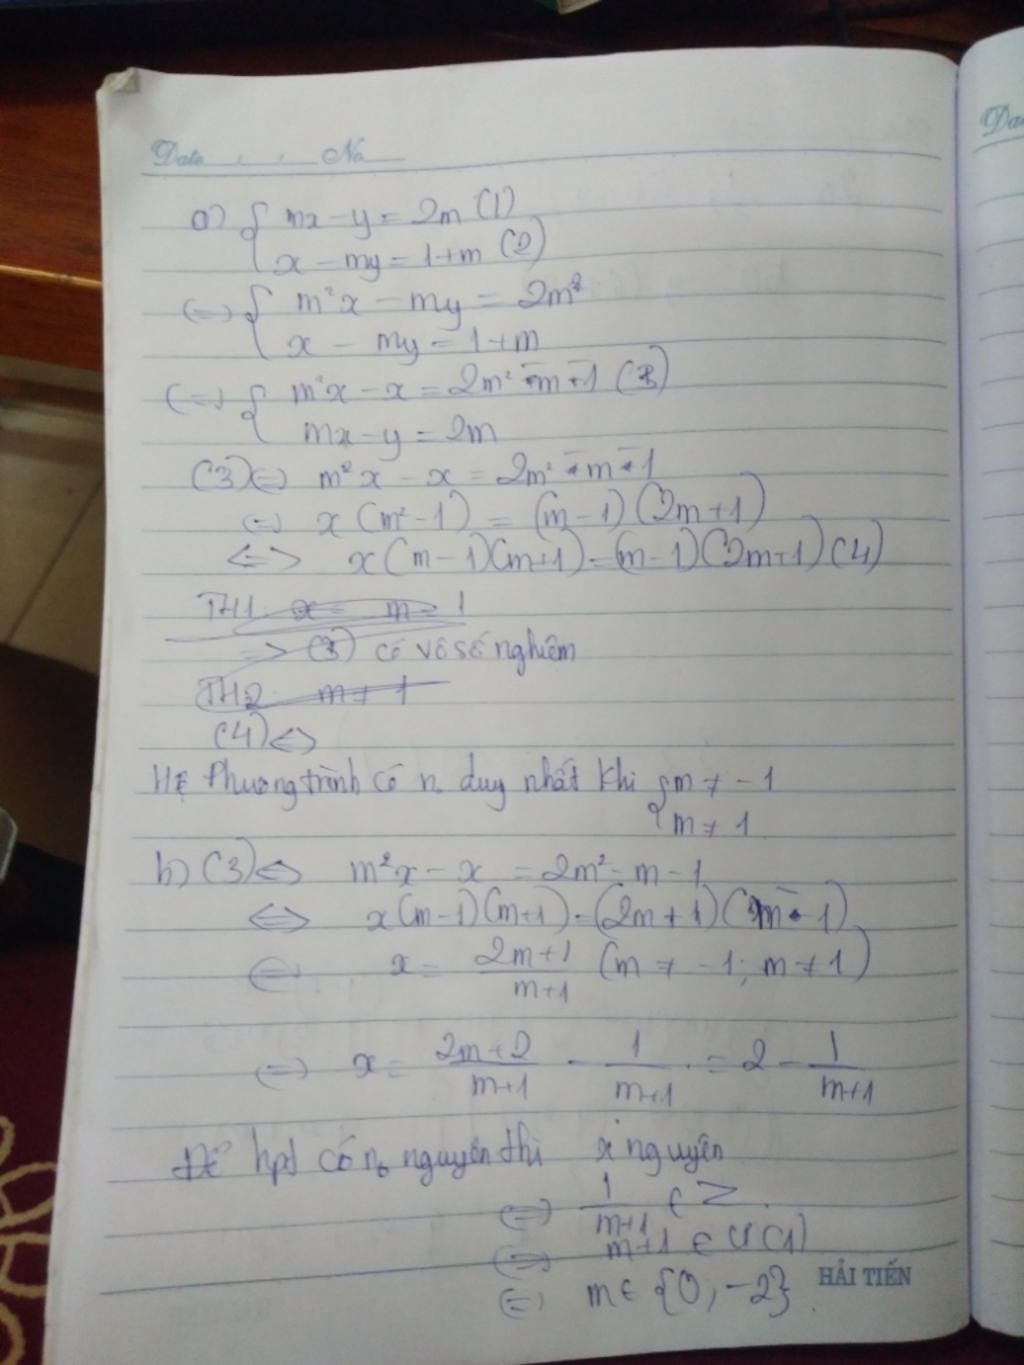 Date . . No
Da
a) { mx - y = 2m (1)
x - my = 1+m (2)
<=> { m²x - my = 2m²
x - my = 1+m
<=> { m²x - x = 2m² - m - 1 (3)
mx - y = 2m
(3) <=> m²x - x = 2m² - m - 1
<=> x(m² - 1) = (m-1)(2m+1)
<=> x(m-1)(m+1) = (m-1)(2m+1) (4)
TH1: x = m = 1
=> (3) có vô số nghiêm
TH2 m ≠ 1
(4) <=>
Hệ Phương trình có n. duy nhất khi { m ≠ -1
m ≠ 1
b) (3) <=> m²x - x = 2m² - m - 1
<=> x(m-1)(m+1) = (2m+1)(m-1)
<=> x = (2m+1)/(m+1) (m ≠ -1; m ≠ 1)
<=> x = (2m+2)/(m+1) - 1/(m+1) = 2 - 1/(m+1)
Để hpt có n₀ nguyên thì x nguyên
<=> 1/(m+1) ∈ Z
<=> m+1 ∈ Ư(1)
<=> m ∈ {0, -2}.
HẢI TIẾN